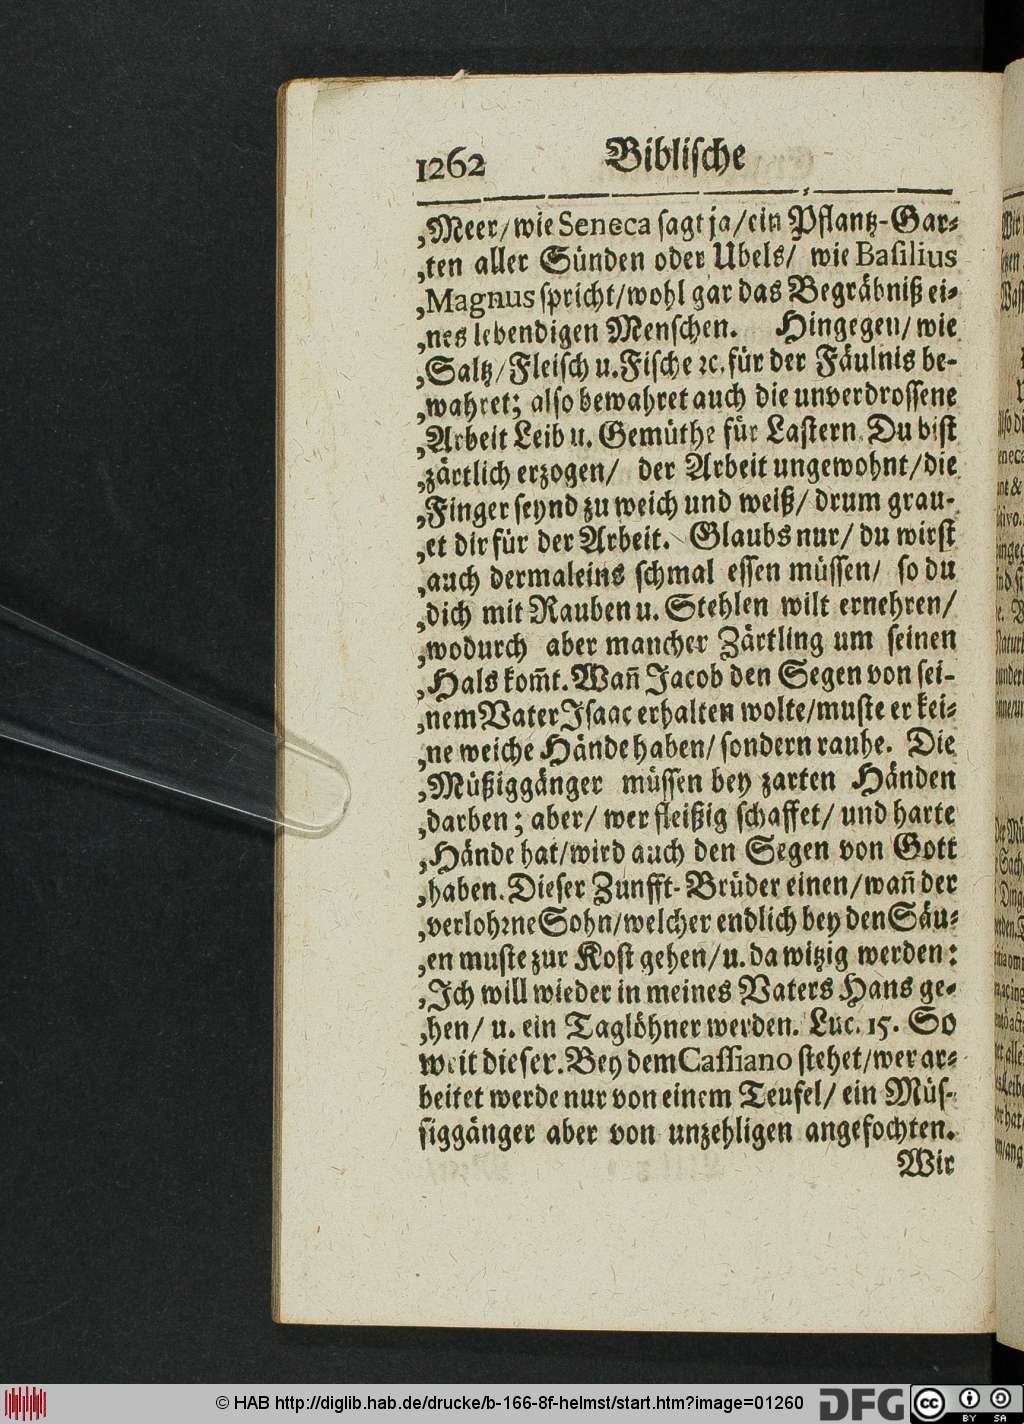 1262 Biblische
‚Meer/ wie Seneca sagt ja/ ein Pflantz-Gar-
‚ten aller Sünden oder Ubels/ wie Basilius
‚Magnus spricht/ wohl gar das Begräbniß ei-
‚nes lebendigen Menschen. Hingegen/ wie
‚Saltz/ Fleisch u. Fische ꝛc. für der Fäulnis be-
‚wahret; also bewahret auch die unverdrossene
‚Arbeit Leib u. Gemüthe für Lastern. Du bist
‚zärtlich erzogen/ der Arbeit ungewohnt/ die
‚Finger seynd zu weich und weiß/ drum grau-
‚et dir für der Arbeit. Glaubs nur/ du wirst
‚auch dermaleins schmal essen müssen/ so du
‚dich mit Rauben u. Stehlen wilt ernehren/
‚wodurch aber mancher Zärtling um seinen
‚Hals kom̃t. Wañ Jacob den Segen von sei-
‚nem Vater Isaac erhalten wolte/ muste er kei-
‚ne weiche Hände haben/ sondern rauhe. Die
‚Müßiggänger müssen bey zarten Händen
‚darben; aber/ wer fleißig schaffet/ und harte
‚Hände hat/ wird auch den Segen von Gott
‚haben. Dieser Zunfft-Brüder einen/ wañ der
‚verlohrne Sohn/ welcher endlich bey den Säu-
‚en muste zur Kost gehen/ u. da witzig werden:
‚Ich will wieder in meines Vaters Haus ge-
‚hen/ u. ein Taglöhner werden. Luc. 15. So
weit dieser. Bey dem Cassiano stehet/ wer ar-
beitet werde nur von einem Teufel/ ein Müs-
siggänger aber von unzehligen angefochten.
Wir
© HAB http://diglib.hab.de/drucke/b-166-8f-helmst/start.htm?image=01260
DFG
cc BY SA